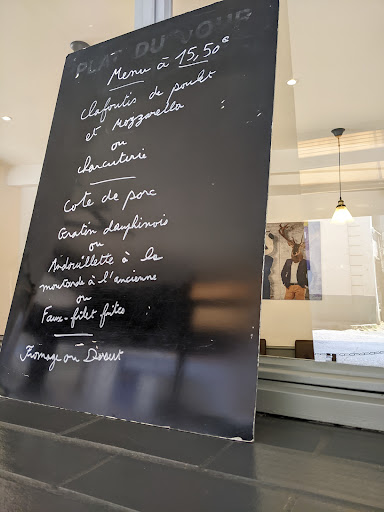 PLAT DU JOUR
Menu à 15,50€
Clafoutis de poulet
et Mozzarella
ou
charcuterie
Cote de porc
Gratin dauphinois
ou
Andouillette à la
moutarde à l'ancienne
ou
Faux-filet frites
Fromage ou Dessert